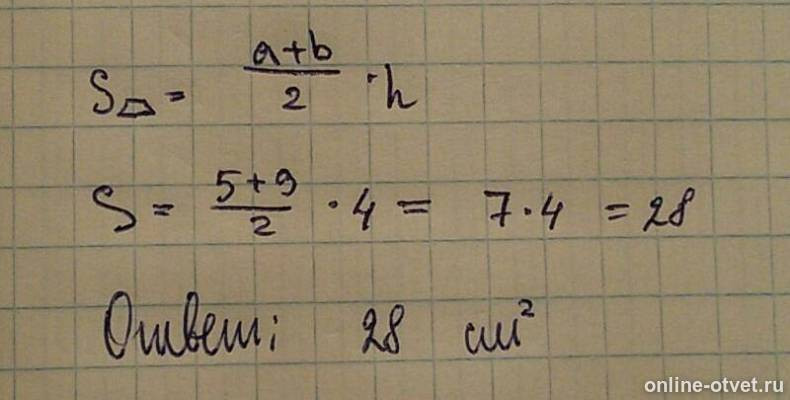 S⏢ = (a+b)/2 · h
S = (5+9)/2 · 4 = 7·4 = 28
Ответ: 28 см²
online-otvet.ru